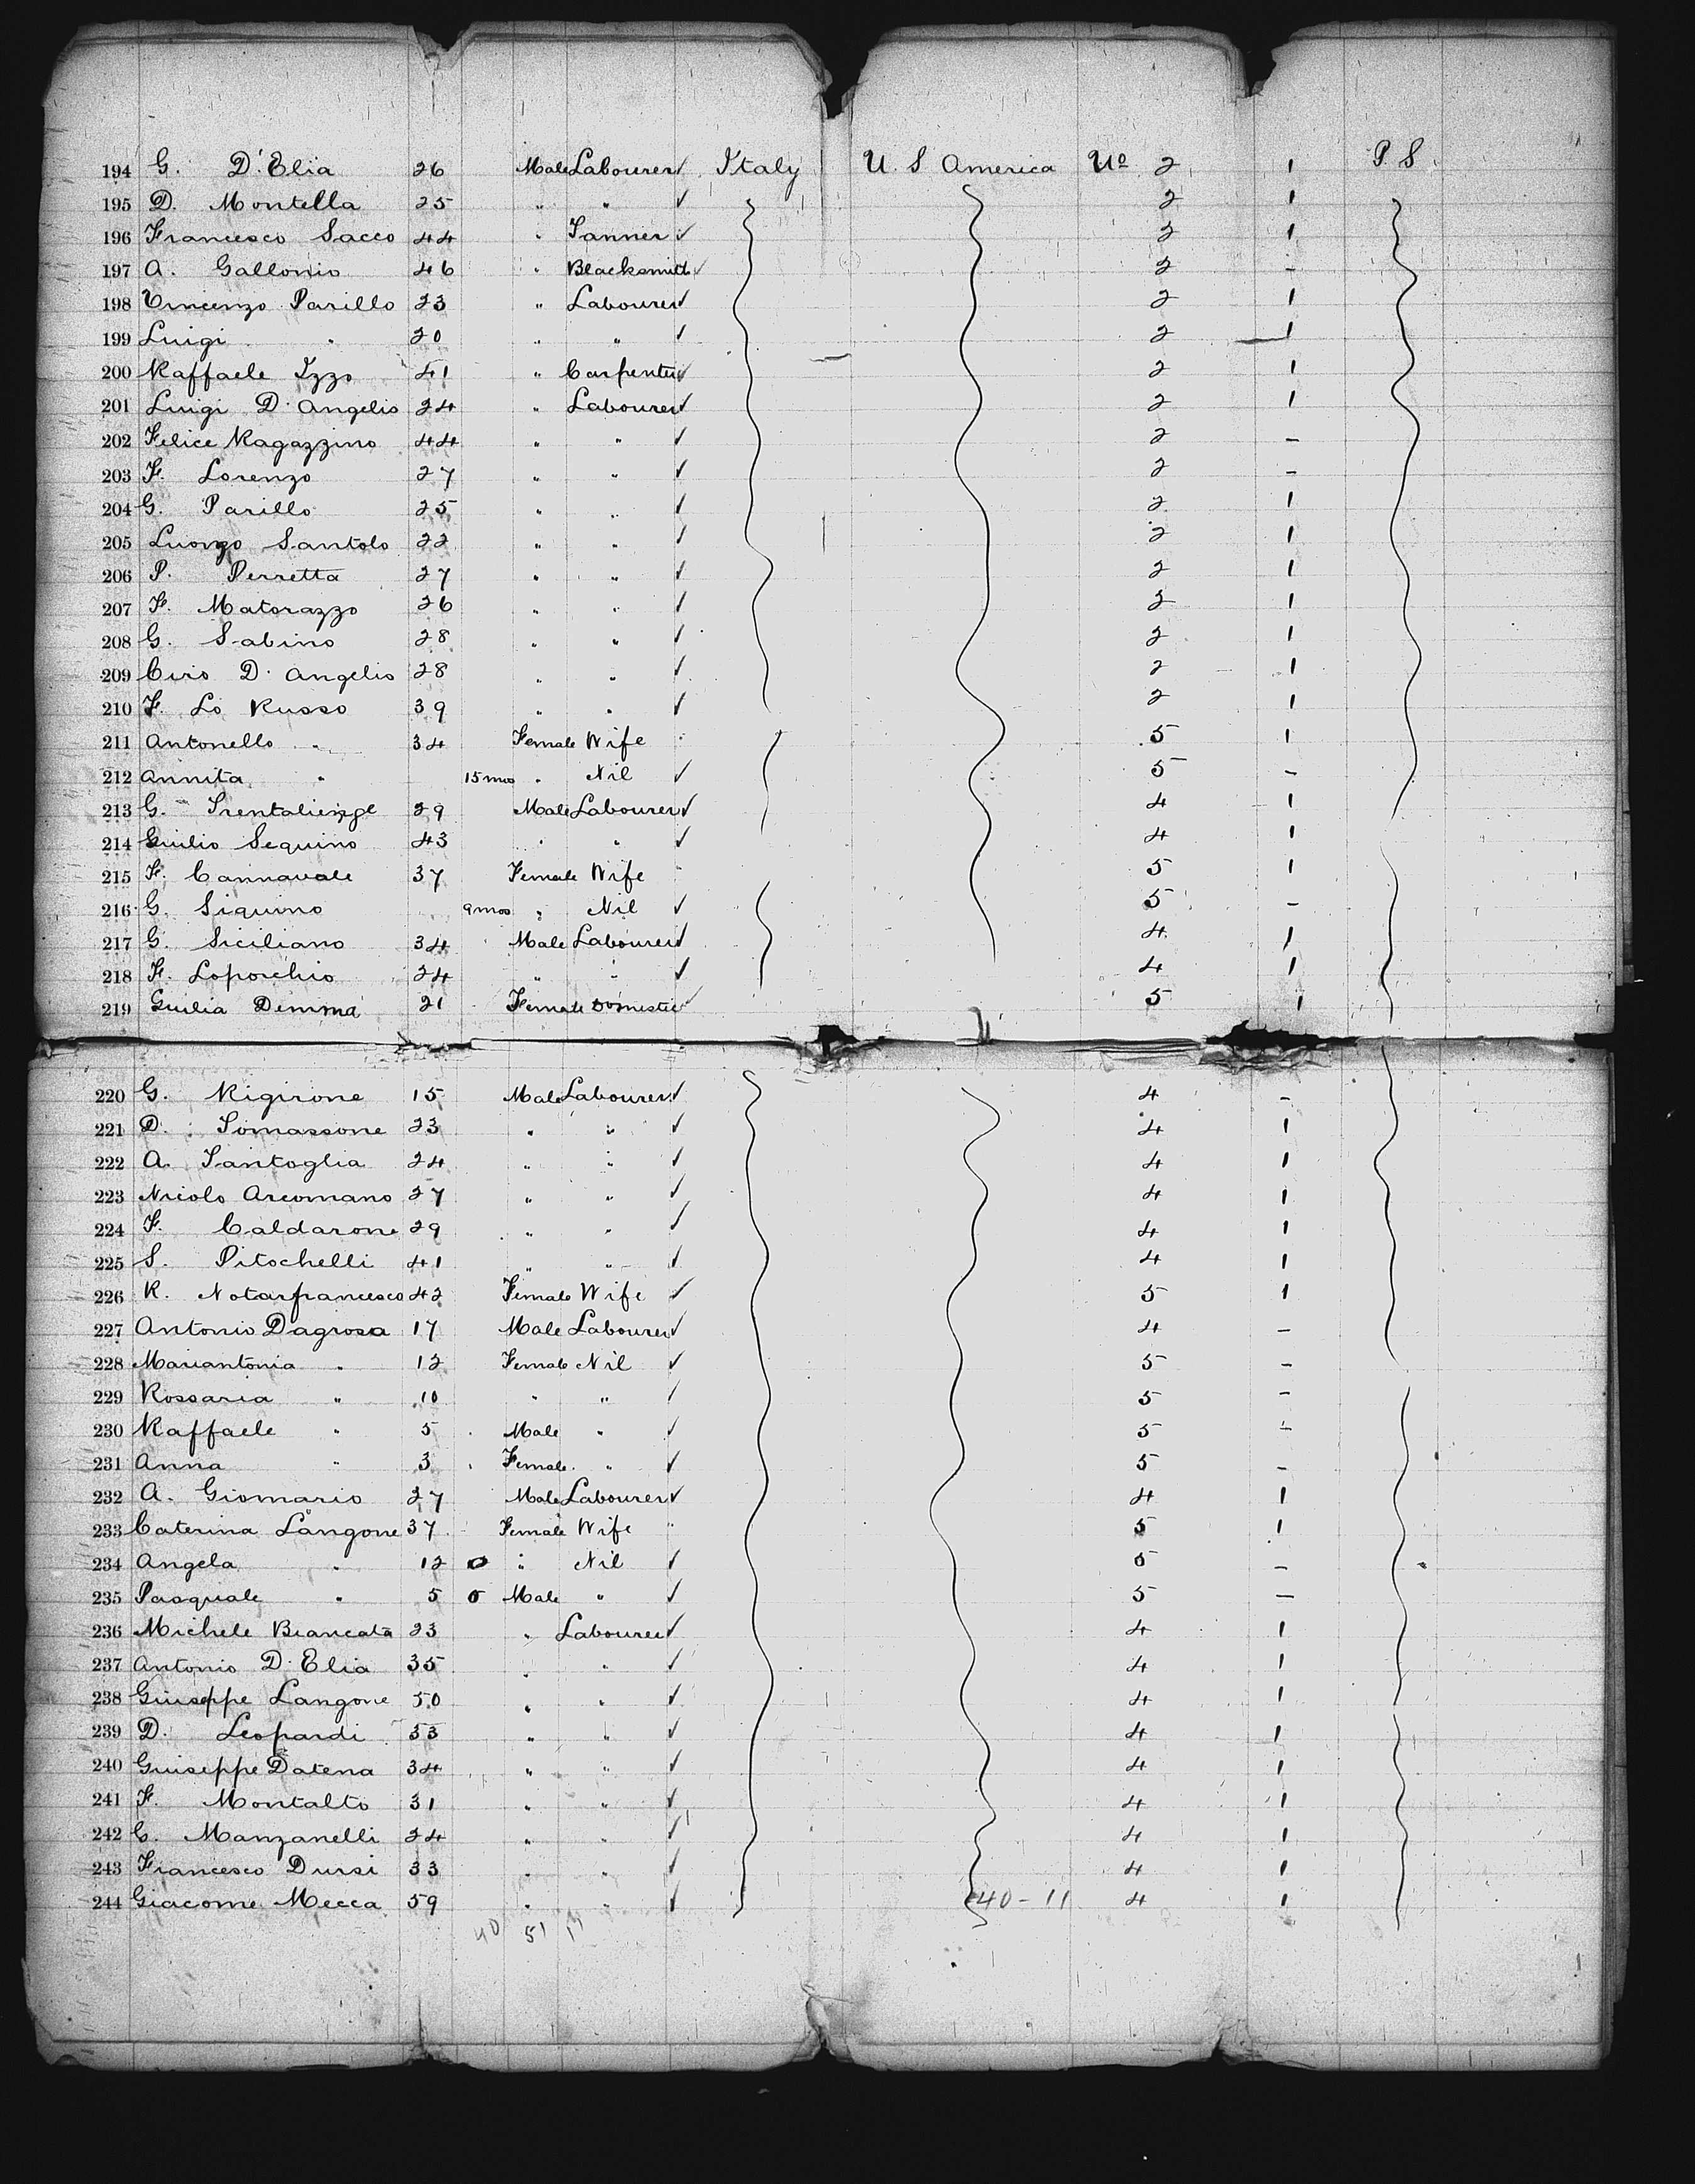 194 G. D'Elia 26 Male Labourer ✓ Italy U. S America Uº 2 1 P. S.
195 D. Montella 25 " " ✓ 2 1
196 Francesco Sacco 44 " Tanner ✓ 2 1
197 A. Gallonio 46 " Blacksmith ✓ 2 -
198 Vincenzo Parillo 23 " Labourer ✓ 2 1
199 Luigi " 20 " " ✓ 2 1
200 Raffaele Izzo 41 " Carpenter ✓ 2 1
201 Luigi D'Angelis 24 " Labourer ✓ 2 1
202 Felice Ragazzino 44 " " ✓ 2 -
203 F. Lorenzo 27 " " ✓ 2 -
204 G. Parillo 25 " " ✓ 2 1
205 Luongo Santolo 22 " " ✓ 2 1
206 P. Perretta 27 " " ✓ 2 1
207 F. Matorazzo 26 " " ✓ 2 1
208 G. Sabino 28 " " ✓ 2 1
209 Ciro D'Angelis 28 " " ✓ 2 1
210 F. Lo Russo 39 " " ✓ 2 1
211 Antonello " 34 Female Wife 5 1
212 Annita " 15 mos " Nil ✓ 5 -
213 G. 29 Male Labourer ✓ 4 1
214 Giulio Sequino 43 " " ✓ 4 1
215 F. Cannavale 37 Female Wife 5 1
216 G. Siquino 9 mos " Nil ✓ 5 -
217 G. Siciliano 34 Male Labourer ✓ 4 1
218 F. Loporchio 24 " " ✓ 4 1
219 Giulia Demma 21 Female Domestic ✓ 5 1
220 G. Rigirone 15 Male Labourer ✓ 4 -
221 D. Tomassone 23 " " ✓ 4 1
222 A. Santoglia 24 " " ✓ 4 1
223 Nicolo Arcomano 27 " " ✓ 4 1
224 F. Caldarone 29 " " ✓ 4 1
225 S. Pitochelli 41 " " ✓ 4 1
226 R. Notarfrancesco 42 Female Wife ✓ 5 1
227 Antonio Dagrosa 17 Male Labourer ✓ 4 -
228 Mariantonia " 12 Female Nil ✓ 5 -
229 Rossaria " 10 " " ✓ 5 -
230 Raffaele " 5 Male " ✓ 5 -
231 Anna " 3 Female " ✓ 5 -
232 A. Giomario 27 Male Labourer ✓ 4 1
233 Caterina Langone 37 Female Wife 5 1
234 Angela " 12 0 " Nil ✓ 5 -
235 Pasquale " 5 0 Male " ✓ 5 -
236 Michele Brancata 23 " Labourer ✓ 4 1
237 Antonio D'Elia 35 " " ✓ 4 1
238 Giuseppe Langone 50 " " ✓ 4 1
239 D. Leopardi 33 " " ✓ 4 1
240 Guiseppe Datena 34 " " ✓ 4 1
241 F. Montalto 31 " " ✓ 4 1
242 C. Manzanelli 24 " " ✓ 4 1
243 Francesco Dursi 33 " " ✓ 4 1
244 Giacome Mecca 59 " " ✓ 40-11 4 1
40 51 11